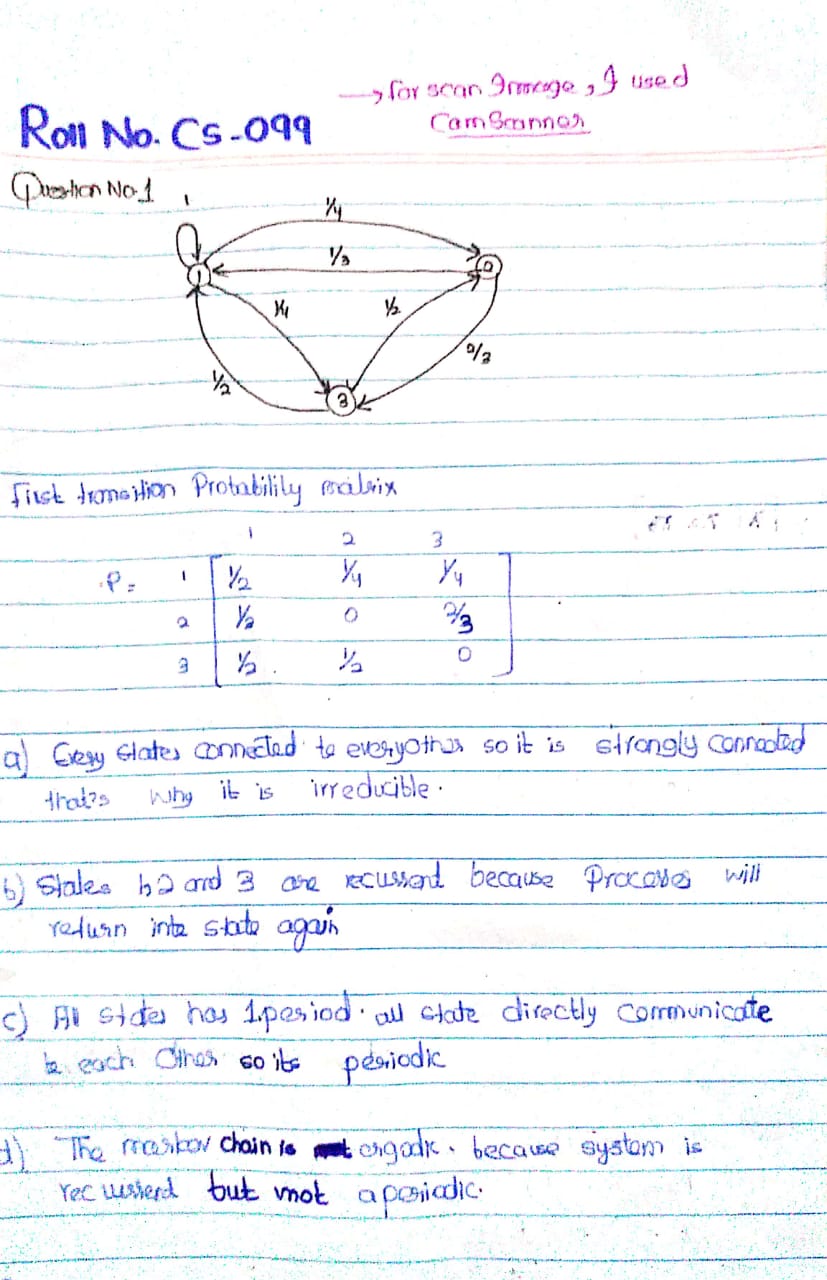 → for scan Image, I used
CamScanner
Roll No. CS-099
Question No 1
1
1/4
1/3
1
2
1/4
1/2
2/3
1/2
3
First transition Probability matrix
1 2 3
P = 1 1/2 1/4 1/4
2 1/3 0 2/3
3 1/2 1/2 0
a) Every States connected to everyother so it is strongly connected
that's why it is irreducible.
b) States 1,2 and 3 are recussent because Processes will
return into state again
c) All states has 1.period. all state directly communicate
to each Other so its periodic
d) The markov chain is ergodic. because system is
recussend but not aperiodic.